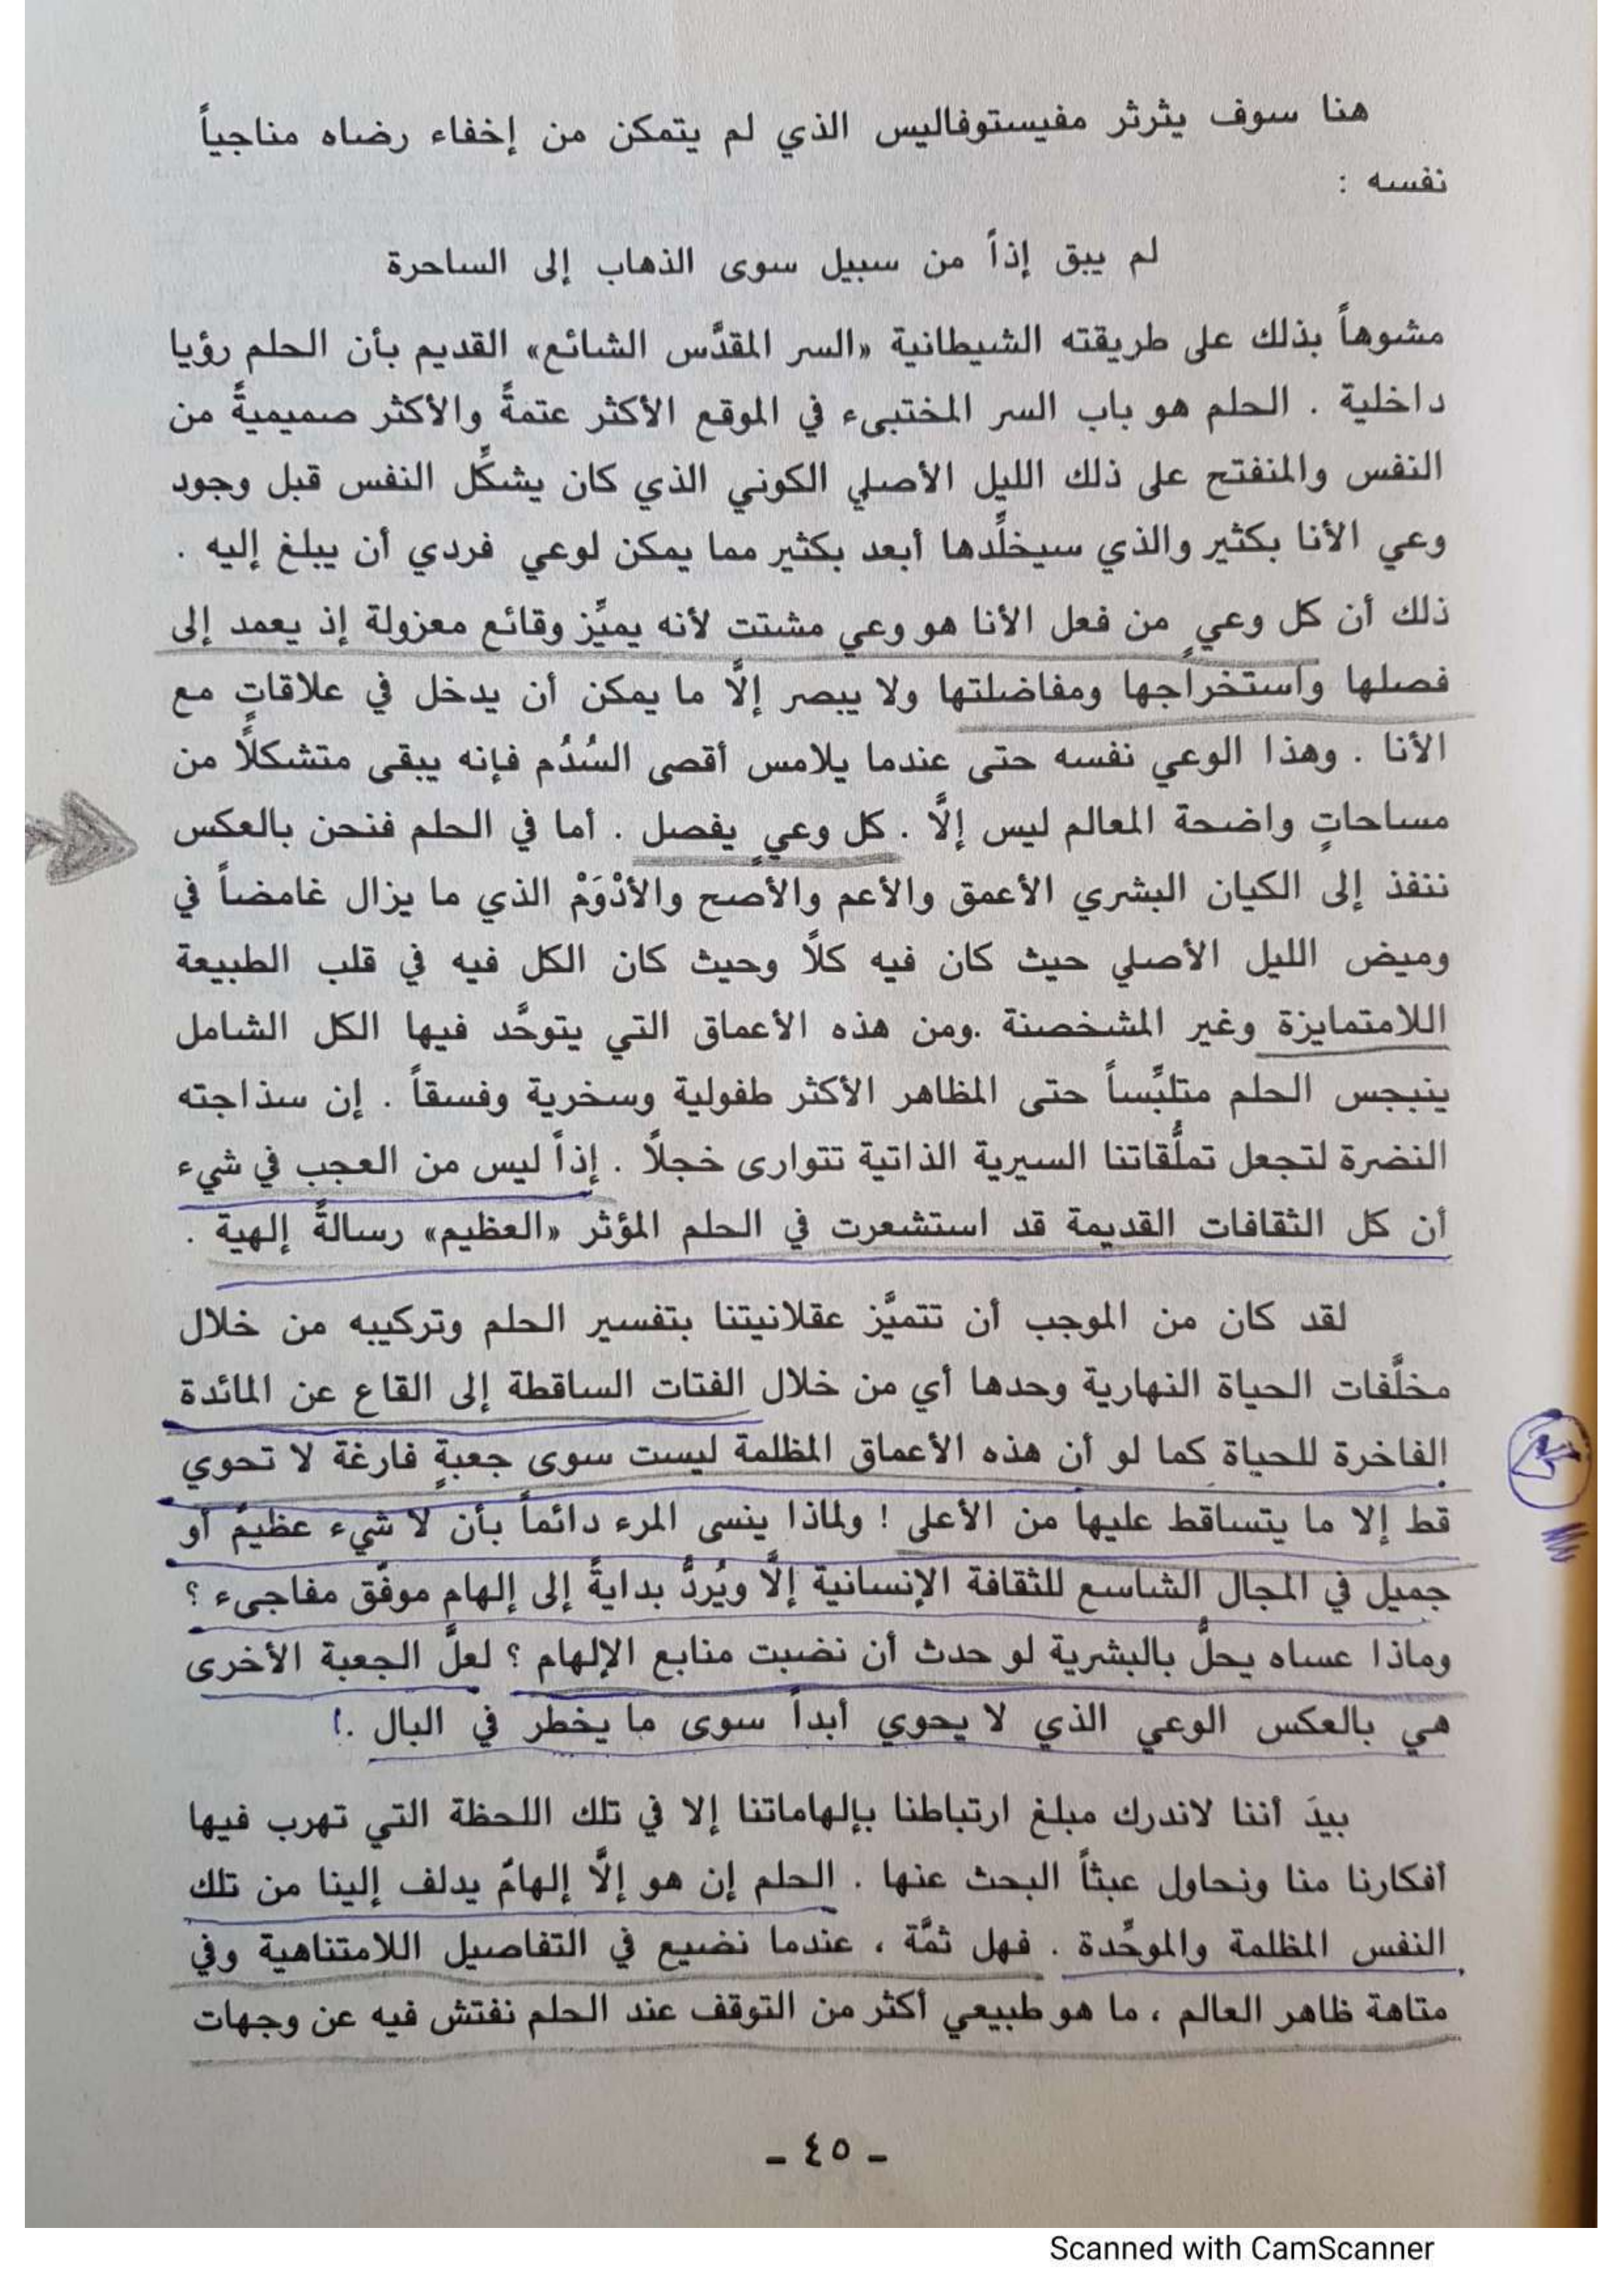 هنا سوف يثرثر مفيستوفاليس الذي لم يتمكن من إخفاء رضاه مناجياً
نفسه :
لم يبق إذاً من سبيل سوى الذهاب إلى الساحرة
مشوهاً بذلك على طريقته الشيطانية «السر المقدَّس الشائع» القديم بأن الحلم رؤيا
داخلية . الحلم هو باب السر المختبىء في الموقع الأكثر عتمةً والأكثر صميميةً من
النفس والمنفتح على ذلك الليل الأصلي الكوني الذي كان يشكِّل النفس قبل وجود
وعي الأنا بكثير والذي سيخلِّدها أبعد بكثير مما يمكن لوعي فردي أن يبلغ إليه .
ذلك أن كل وعيٍ من فعل الأنا هو وعي مشتت لأنه يميِّز وقائع معزولة إذ يعمد إلى
فصلها واستخراجها ومفاضلتها ولا يبصر إلَّا ما يمكن أن يدخل في علاقاتٍ مع
الأنا . وهذا الوعي نفسه حتى عندما يلامس أقصى السُدُم فإنه يبقى متشكلاً من
مساحاتٍ واضحة المعالم ليس إلَّا . كل وعيٍ يفصل . أما في الحلم فنحن بالعكس
ننفذ إلى الكيان البشري الأعمق والأعم والأصح والأدْوَمْ الذي ما يزال غامضاً في
وميض الليل الأصلي حيث كان فيه كلاً وحيث كان الكل فيه في قلب الطبيعة
اللامتمايزة وغير المشخصنة .ومن هذه الأعماق التي يتوحَّد فيها الكل الشامل
ينبجس الحلم متلبِّساً حتى المظاهر الأكثر طفولية وسخرية وفسقاً . إن سذاجته
النضرة لتجعل تملُّقاتنا السيرية الذاتية تتوارى خجلاً . إذاً ليس من العجب في شيء
أن كل الثقافات القديمة قد استشعرت في الحلم المؤثر «العظيم» رسالةً إلهية .
لقد كان من الموجب أن تتميَّز عقلانيتنا بتفسير الحلم وتركيبه من خلال
مخلَّفات الحياة النهارية وحدها أي من خلال الفتات الساقطة إلى القاع عن المائدة
الفاخرة للحياة كما لو أن هذه الأعماق المظلمة ليست سوى جعبةٍ فارغة لا تحوي
قط إلا ما يتساقط عليها من الأعلى ! ولماذا ينسى المرء دائماً بأن لا شيء عظيمٌ أو
جميل في المجال الشاسع للثقافة الإنسانية إلَّا ويُردُّ بدايةً إلى إلهام موفَّق مفاجىء ؟
وماذا عساه يحلُّ بالبشرية لو حدث أن نضبت منابع الإلهام ؟ لعلَّ الجعبة الأخرى
هي بالعكس الوعي الذي لا يحوي أبداً سوى ما يخطر في البال .!
بيدَ أننا لاندرك مبلغ ارتباطنا بإلهاماتنا إلا في تلك اللحظة التي تهرب فيها
أفكارنا منا ونحاول عبثاً البحث عنها . الحلم إن هو إلَّا إلهامٌ يدلف إلينا من تلك
النفس المظلمة والموحِّدة . فهل ثمَّة ، عندما نضيع في التفاصيل اللامتناهية وفي
متاهة ظاهر العالم ، ما هو طبيعي أكثر من التوقف عند الحلم نفتش فيه عن وجهات
- ٤٥ -
Scanned with CamScanner